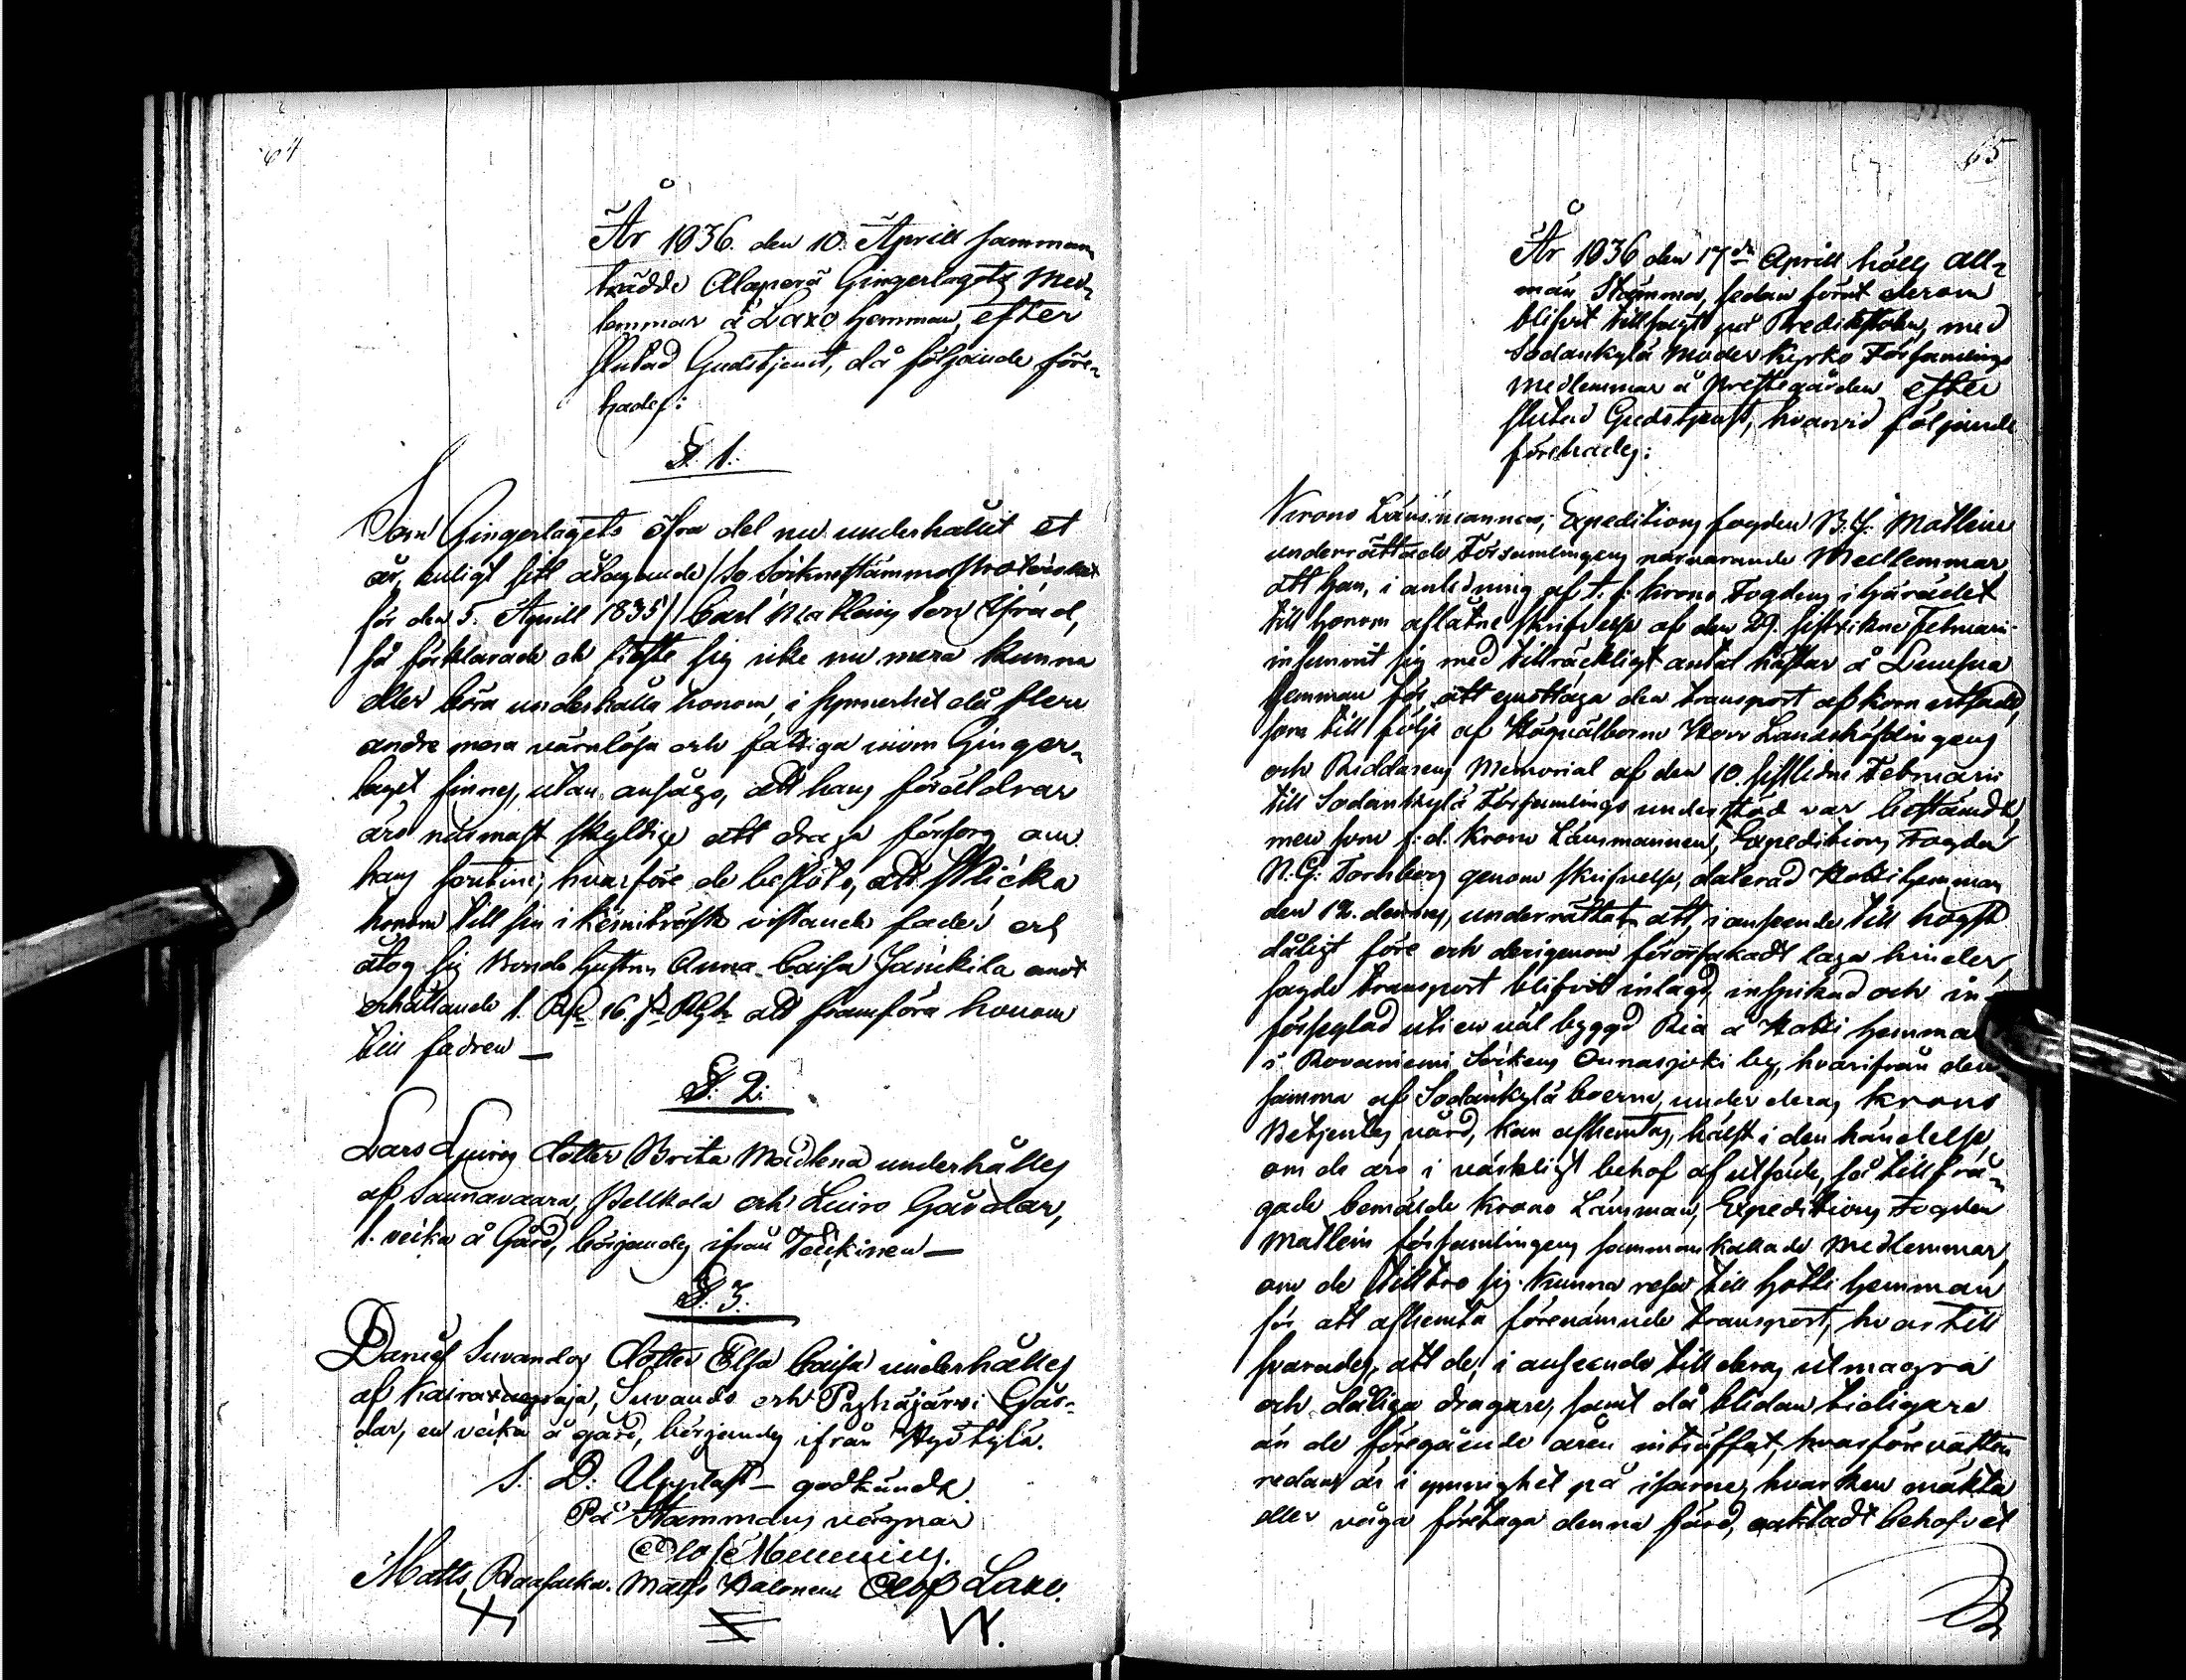 64
År 1836. den 10. Aprill samman
trädde Alaperä Gingerlagets Med¬
lemmar å Laxo hemman, efter
slutad Gudstjenst, då följande före¬
hades:
§. 1.
Som Gingerlagets öfra del nu underhållit et
år, enligt sitt åtagande /se Sockenstämmo
för den 5. Aprill 1835/ Carl son
så förklarade de sig icke nu mera kunna
eller böra underhålla honom, i synnerhet då flere
andre mera värnlösa och fattiga inom Ginger¬
laget finnes, utan ansågo, att hans föräldrar
äro närmast skyldige att draga försorg om
hans hvarföre de beslöto, att skicka
honom till sin i Kemiträsk vistande fader och
åtog sig Bonde hustrun Anna Caisa emot
erhållande 1. 16. att framföra honom
till fadren —
§. 2.
Lars Luiros dotter Brita Madlena underhålles
af Saunavaara, Pelkola och Luiro Gårdar,
1. vecka å Gård, börjandes ifrån
§. 3.
Daniel Suvandos dotter Elsa Caisa underhålles
af Suvando och Pyhäjärvi Går¬
dar, en vecka å gård, börjandes ifrån
S. D. Uppläst — godkändt.
På Stämmans vägnar
Olof
Matts Matts Olof Laxo.
65
År 1836 den 17de Aprill hölls All¬
män Stämma, sedan förut derom
blifvit tillsagt på Predikstolen, med
Sodankylä Moder Kyrko Församlings
Medlemmar å Prestegården efter
slutad Gudstjenst, hvarvid följande
förehades:
Krono Länsmannen, Expeditions fogden Matlein
underrättade Församlingens närvarande Medlemmar,
att han, i anledning af t. f. Krono Fogdens i häradet
till honom aflåtne skrifvelse af den 29. sistvikne Februari
infunnit sig med tillräckligt antal hästar å
hemman för att emottaga den transport af korn utsäde,
som till följe af Högvälborne Herr Landshöfdingens
och Riddarens Memorial af den 10. sistledne Februarii
till Sodankylä Församlings understöd var bestämdt,
men som f. d. Krono Länsmannen, Expeditions Fogden
N. G. Fornberg genom skrifvelse, daterad hemman
den underrättat att, i anseende till högst
dåligt före och derigenom förorsakadt laga hinder,
sagde transport blifvit inlagd, inspikad och in¬
förseglad uti en väl byggd Ria å hemman
i Rovaniemi Sockens Ounasjoki by, hvarifrån den¬
samma af Sodankylä boerne, under deras Krono
Betjentes vård, kan afhemtas, hälst i den händelse,
om de äro i värkligt behof af utsäde, så tillfrå¬
gade bemälde Krono Länsman, Expeditions Fogden
Matlein församlingens sammankallade Medlemmar,
om de tilltro sig kunna resa till hemman
för att afhemta förenämnde transport, hvartill
svarades, att de, i anseende till deras utmagra
och dåliga dragare, samt då blidan tidigare
än de föregående åren inträffat, hvarföre vatten
redan är i ymnighet på isarne, hvarken mäkta
eller våga företaga denna färd, oaktadt behofvet